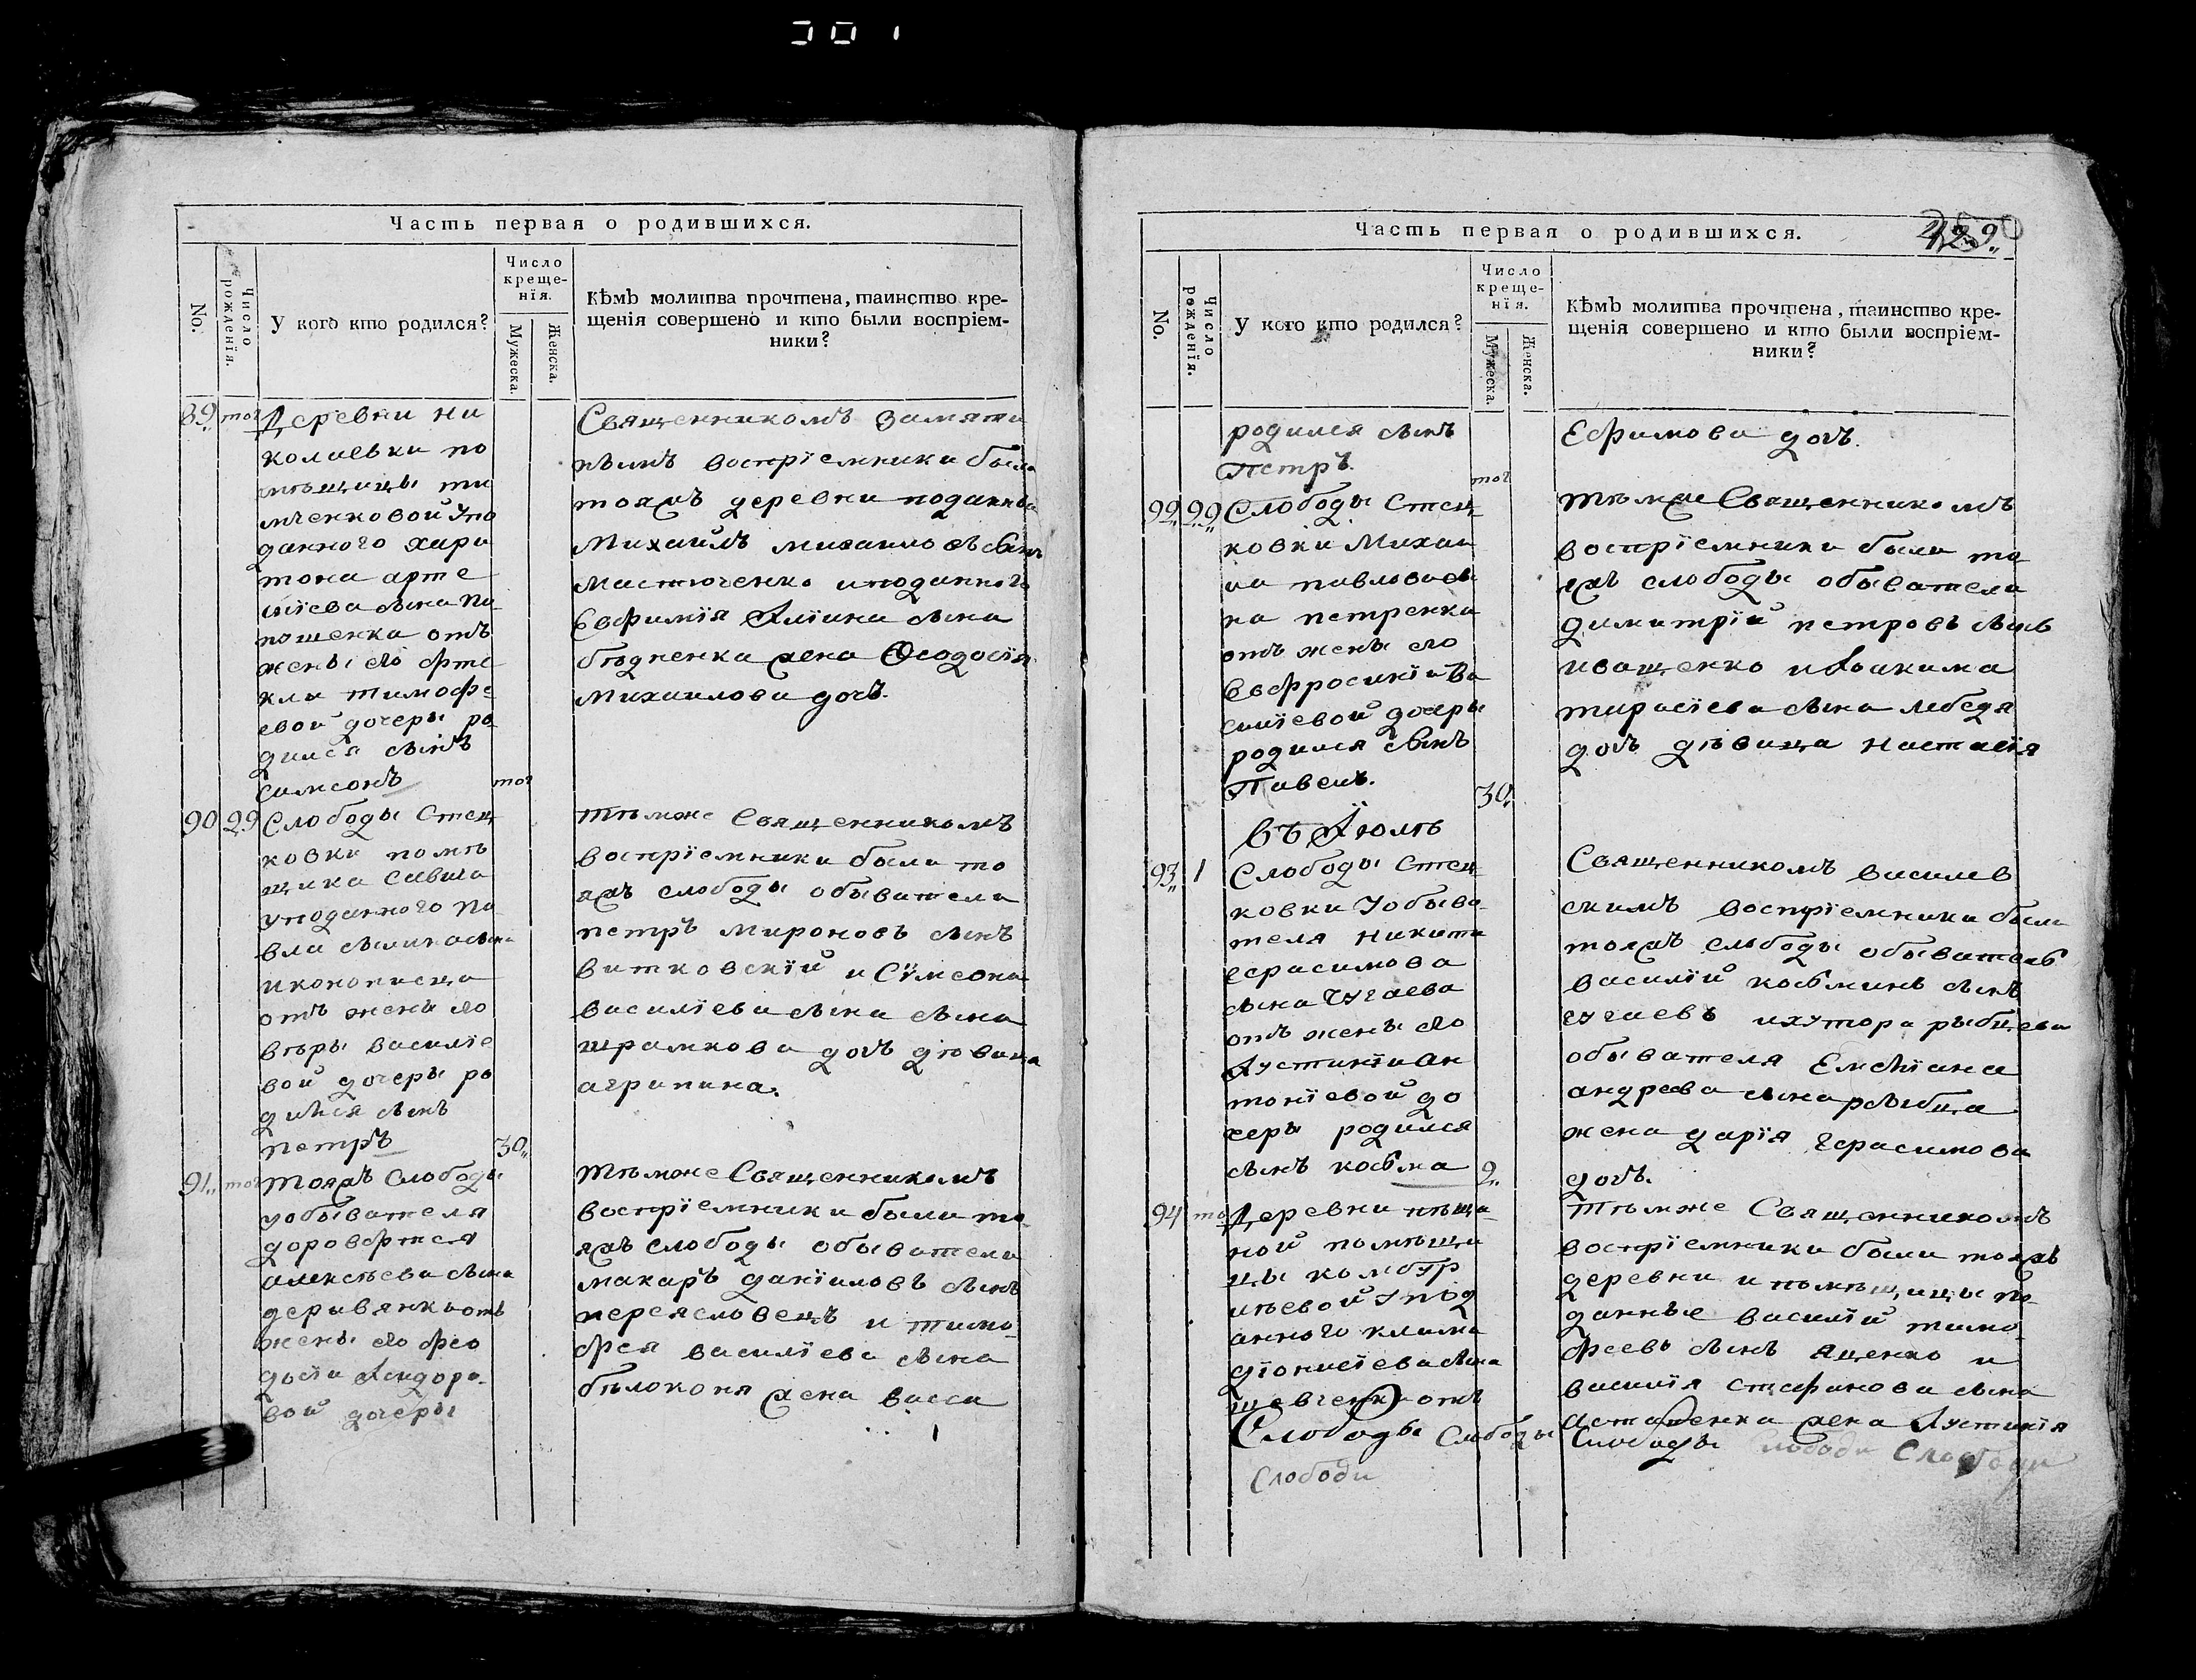 Часть первая о родившихся.
No.
Число рожденїя.
У кого кто родился?
Число
креще-
нїя.
Мужеска.
Женска.
Кѣмъ молитва прочтена, таинство кре-
щенія совершено и кто были воспріем-
ники?
89. тог Деревни Ни
колаевки по
мѣщицы ти
мченковой упо
данного Хари
тона Арте
мїева сына Па
пошенка отъ
жены его
клы Тимофе
евой дочеры ро
дился сынъ
Самсонъ тог
Священникомъ Замяти
нымъ воспрїемники были
тояжъ деревни поданный
Михаилъ Михаиловъ сынъ
Мастюченко и поданного
Евфимїя Илїина сына
бѣдненка жена Ѳеодосїя
Михаилова дочь.
90 29 Слободы Стец
ковки помѣ
щика Савича
уподанного Па
вла
иконописца
отъ жены его
вѣры Василїе
вой дочеры ро
дился сынъ
Петръ 30.
тѣмже Священникомъ
воспрїемники были то
яжъ слободы обыватели
Петръ Мироновъ сынъ
Витковскїй и Сѵмеона
Василїева сына сына
Шрамкова дочь дѣвица
Агрипина.
91. тог Тояжъ Слободы
уобывателя
Алексѣева сына
деривянки отъ
жены его Фео
досїи Исидоро-
вой дочеры
тѣмже Священникомъ
воспрїемники были то-
яжъ слободы обыватели
Макаръ Данїиловъ сынъ
переясловецъ и тимо-
фея Василїева сына
бѣлоконя жена Васса
Часть первая о родившихся.
No.
Число рожденїя.
У кого кто родился?
Число
креще-
нїя.
Мужеска.
Женска.
Кѣмъ молитва прочтена, таинство кре-
щенія совершено и кто были воспріем-
ники?
родился сынъ
Петръ. тог
Ефимова дочь.
92 29 Слободы Стец-
ковки Михаи
ла Павлова сы
на петренка
отъ жены его
Евфросинїи Ва
силїевой дочеры
родился сынъ
Павелъ. 30.
тѣмже Священникомъ
воспрїемники были то
яжъ слободы обыватели
Димитрїй петровъ сынъ
иващенко и Іоакима
тарасїева сына лебедя
дочь дѣвица Настасїя
въ Іюлѣ
93 1 Слободы Стец-
ковки Уобыва-
теля Никиты
Герасимова
сына Чугаева
отъ жены его
Іустинїи Ан
тонїевой до
черы родился
сынъ Косма 2.
Священникомъ василев
скимъ воспрїемники были
тояжъ слободы обыватель
Василїй Косминъ сынъ
Чугаевъ и хутора рыбцева
обывателя Емелїана
Андреева сына рыбца
жена Дарїя Герасимова
дочь.
94 то Деревни пѣща-
ной помѣщи
цы комбур
лѣевой упод
анного Клима
Дїонисїева сына
Шевченка отъ
тѣмже Священникомъ
воспрїемники были тояжъ
деревни и помѣщицы по-
данные Василїй тимо-
феевъ сынъ Ященко и
Василїя Стефанова сына
Астапенка жена Іустинїя
Слободы Слободы Слободы Слободи Слободи
Слободи